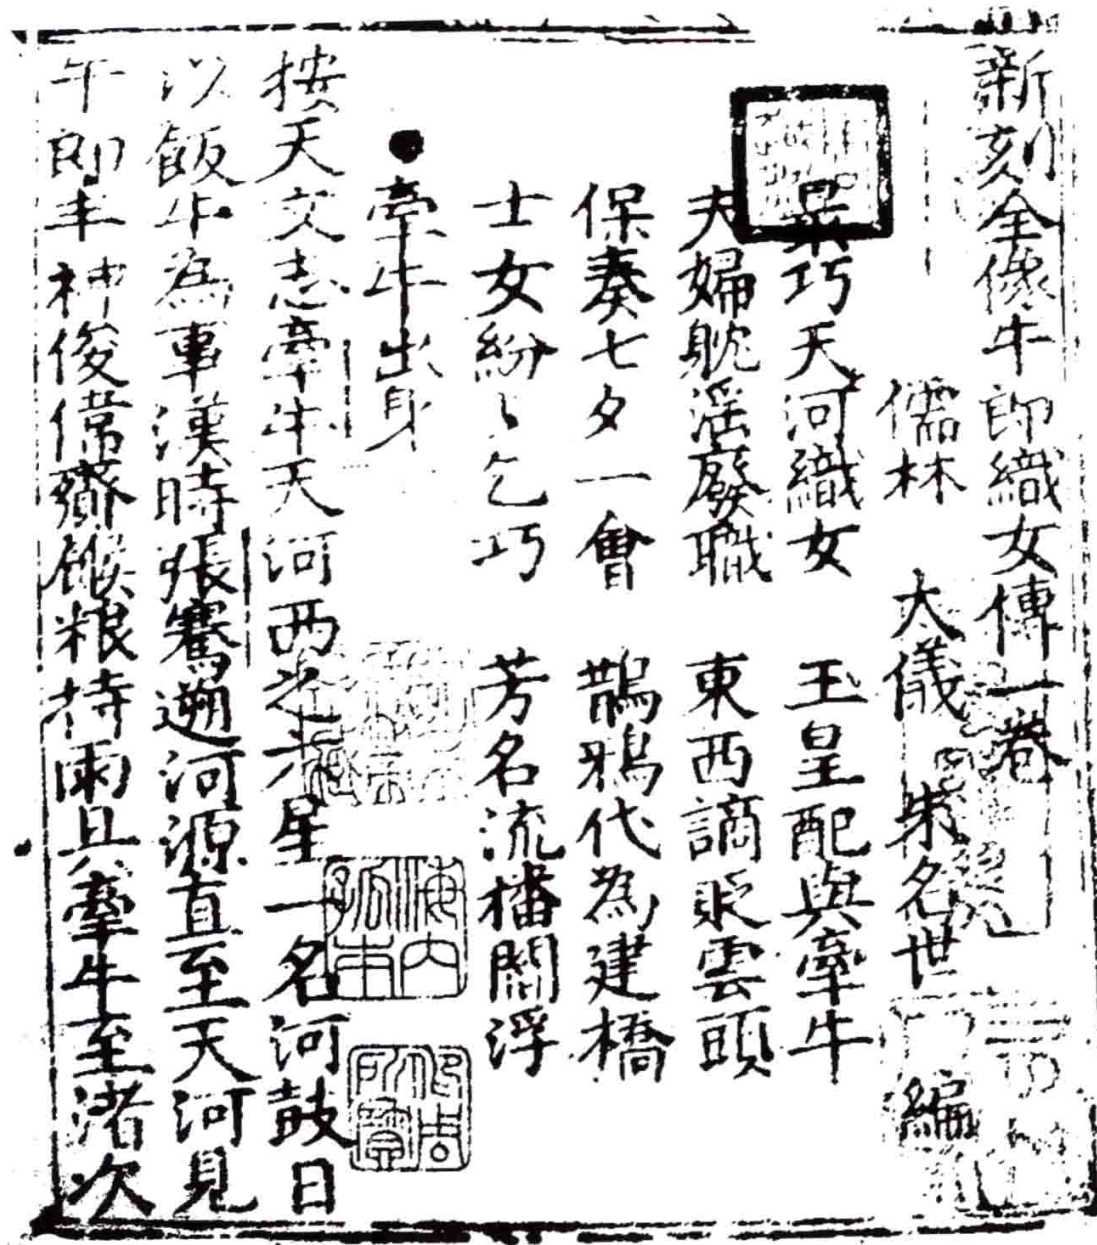 新刻全像牛郎織女傳一卷
儒林 太儀 朱名世 編
巧天河織女 玉皇配與牽牛
夫婦躭淫廢職 東西謫貶雲頭
保奏七夕一會 鵲鴉代為建橋
士女紛〻乞巧 芳名流播閻浮
●牽牛出身
按天文志牽牛天河西 星一名河鼓日
以飯牛為事漢時張騫遡河源直至天河見
牛郎丰神俊偉齎餱粮持雨具牽牛至渚次
海內孤本